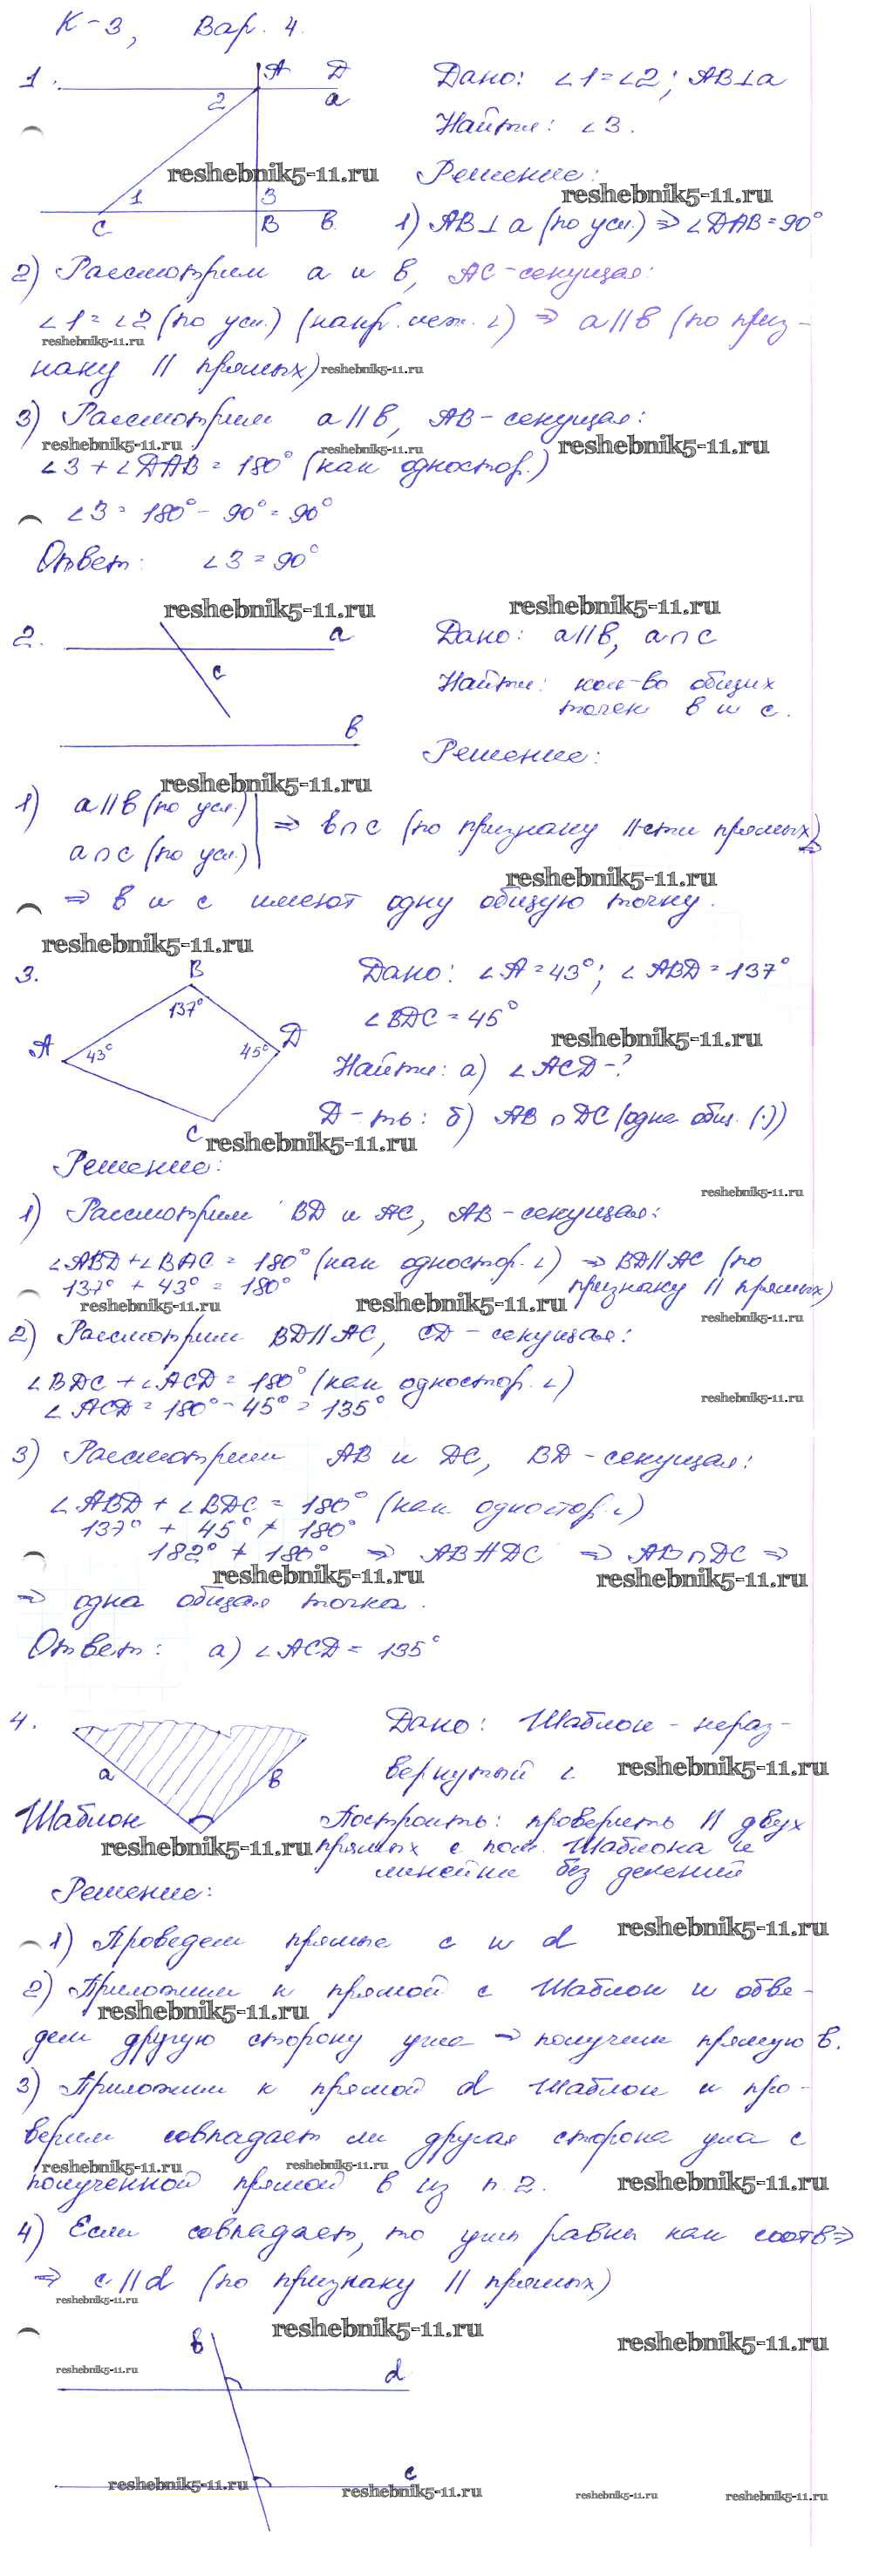 К-3, Вар. 4.
1.
A D
a
2
1 3
C B в
Дано: ∠1=∠2; AB⊥a
Найти: ∠3.
reshebnik5-11.ru
Решение:
reshebnik5-11.ru
1) AB⊥a (по усл.) ⇒ ∠DAB=90°
2) Рассмотрим a и в, AC-секущая:
∠1=∠2 (по усл.) (накр. леж. ∠) ⇒ a||в (по приз-
reshebnik5-11.ru
наку || прямых)
reshebnik5-11.ru
3) Рассмотрим a||в, AB-секущая:
reshebnik5-11.ru
reshebnik5-11.ru
reshebnik5-11.ru
∠3+∠DAB=180° (как одностор.)
∠3=180°-90°=90°
Ответ: ∠3=90°
reshebnik5-11.ru
reshebnik5-11.ru
2.
a
c
в
Дано: a||в, a∩c
Найти: кол-во общих
точек в и c.
Решение:
reshebnik5-11.ru
1) a||в (по усл.)
a∩c (по усл.)
⇒ в∩c (по признаку ||-сти прямых) ⇒
reshebnik5-11.ru
⇒ в и c имеют одну общую точку.
reshebnik5-11.ru
3.
B
137°
A 43° 45° D
C
Дано: ∠A=43°; ∠ABD=137°
∠BDC=45°
reshebnik5-11.ru
Найти: а) ∠ACD-?
Д-ть: б) AB∩DC (одна общ. (·))
reshebnik5-11.ru
Решение:
reshebnik5-11.ru
1) Рассмотрим BD и AC, AB-секущая:
∠ABD+∠BAC=180° (как одностор. ∠) ⇒ BD||AC (по
137°+43°=180° признаку || прямых)
reshebnik5-11.ru
reshebnik5-11.ru
reshebnik5-11.ru
2) Рассмотрим BD||AC, CD-секущая:
∠BDC+∠ACD=180° (как одностор. ∠)
∠ACD=180°-45°=135°
reshebnik5-11.ru
3) Рассмотрим AB и DC, BD-секущая:
∠ABD+∠BDC=180° (как одностор. ∠)
137°+45°≠180°
182°≠180° ⇒ AB∦DC ⇒ AB∩DC ⇒
reshebnik5-11.ru
reshebnik5-11.ru
⇒ одна общая точка.
Ответ: а) ∠ACD=135°
4.
a в
Шаблон
Дано: Шаблон-нераз-
вернутый ∠
reshebnik5-11.ru
Построить: проверить || двух
прямых с пом. Шаблона и
линейки без делений
reshebnik5-11.ru
Решение:
reshebnik5-11.ru
1) Проведем прямые c и d
2) Приложим к прямой c Шаблон и обве-
reshebnik5-11.ru
дем другую сторону угла ⇒ получим прямую в.
3) Приложим к прямой d Шаблон и про-
верим совпадает ли другая сторона угла с
reshebnik5-11.ru
reshebnik5-11.ru
reshebnik5-11.ru
полученной прямой в из п.2.
4) Если совпадает, то углы равны как соотв ⇒
⇒ c||d (по признаку || прямых)
reshebnik5-11.ru
reshebnik5-11.ru
reshebnik5-11.ru
в
reshebnik5-11.ru
d
c
reshebnik5-11.ru
reshebnik5-11.ru
reshebnik5-11.ru
reshebnik5-11.ru